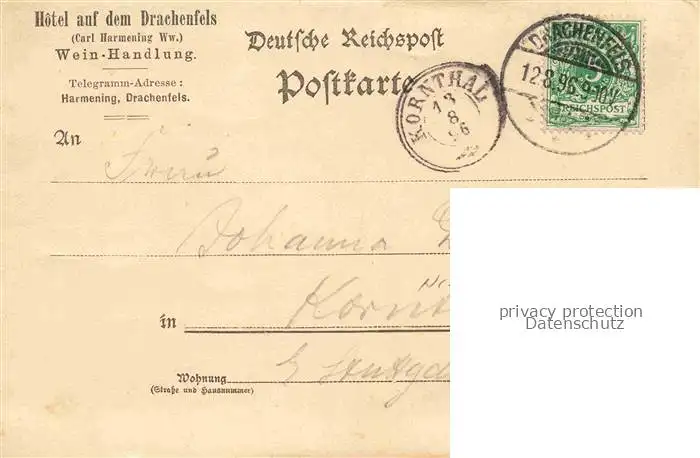 Hôtel auf dem Drachenfels
(Carl Harmening Ww.)
Wein-Handlung.
Telegramm-Adresse:
Harmening, Drachenfels.
Deutsche Reichspost
Postkarte
KORNTHAL
13
8
96
DRACHENFELS
12.8.96.9-10V.
5
REICHSPOST
An
Frau
Johanna
in
Kornt
b/ Stuttg
Wohnung
(Straße und Hausnummer)
privacy protection
Datenschutz